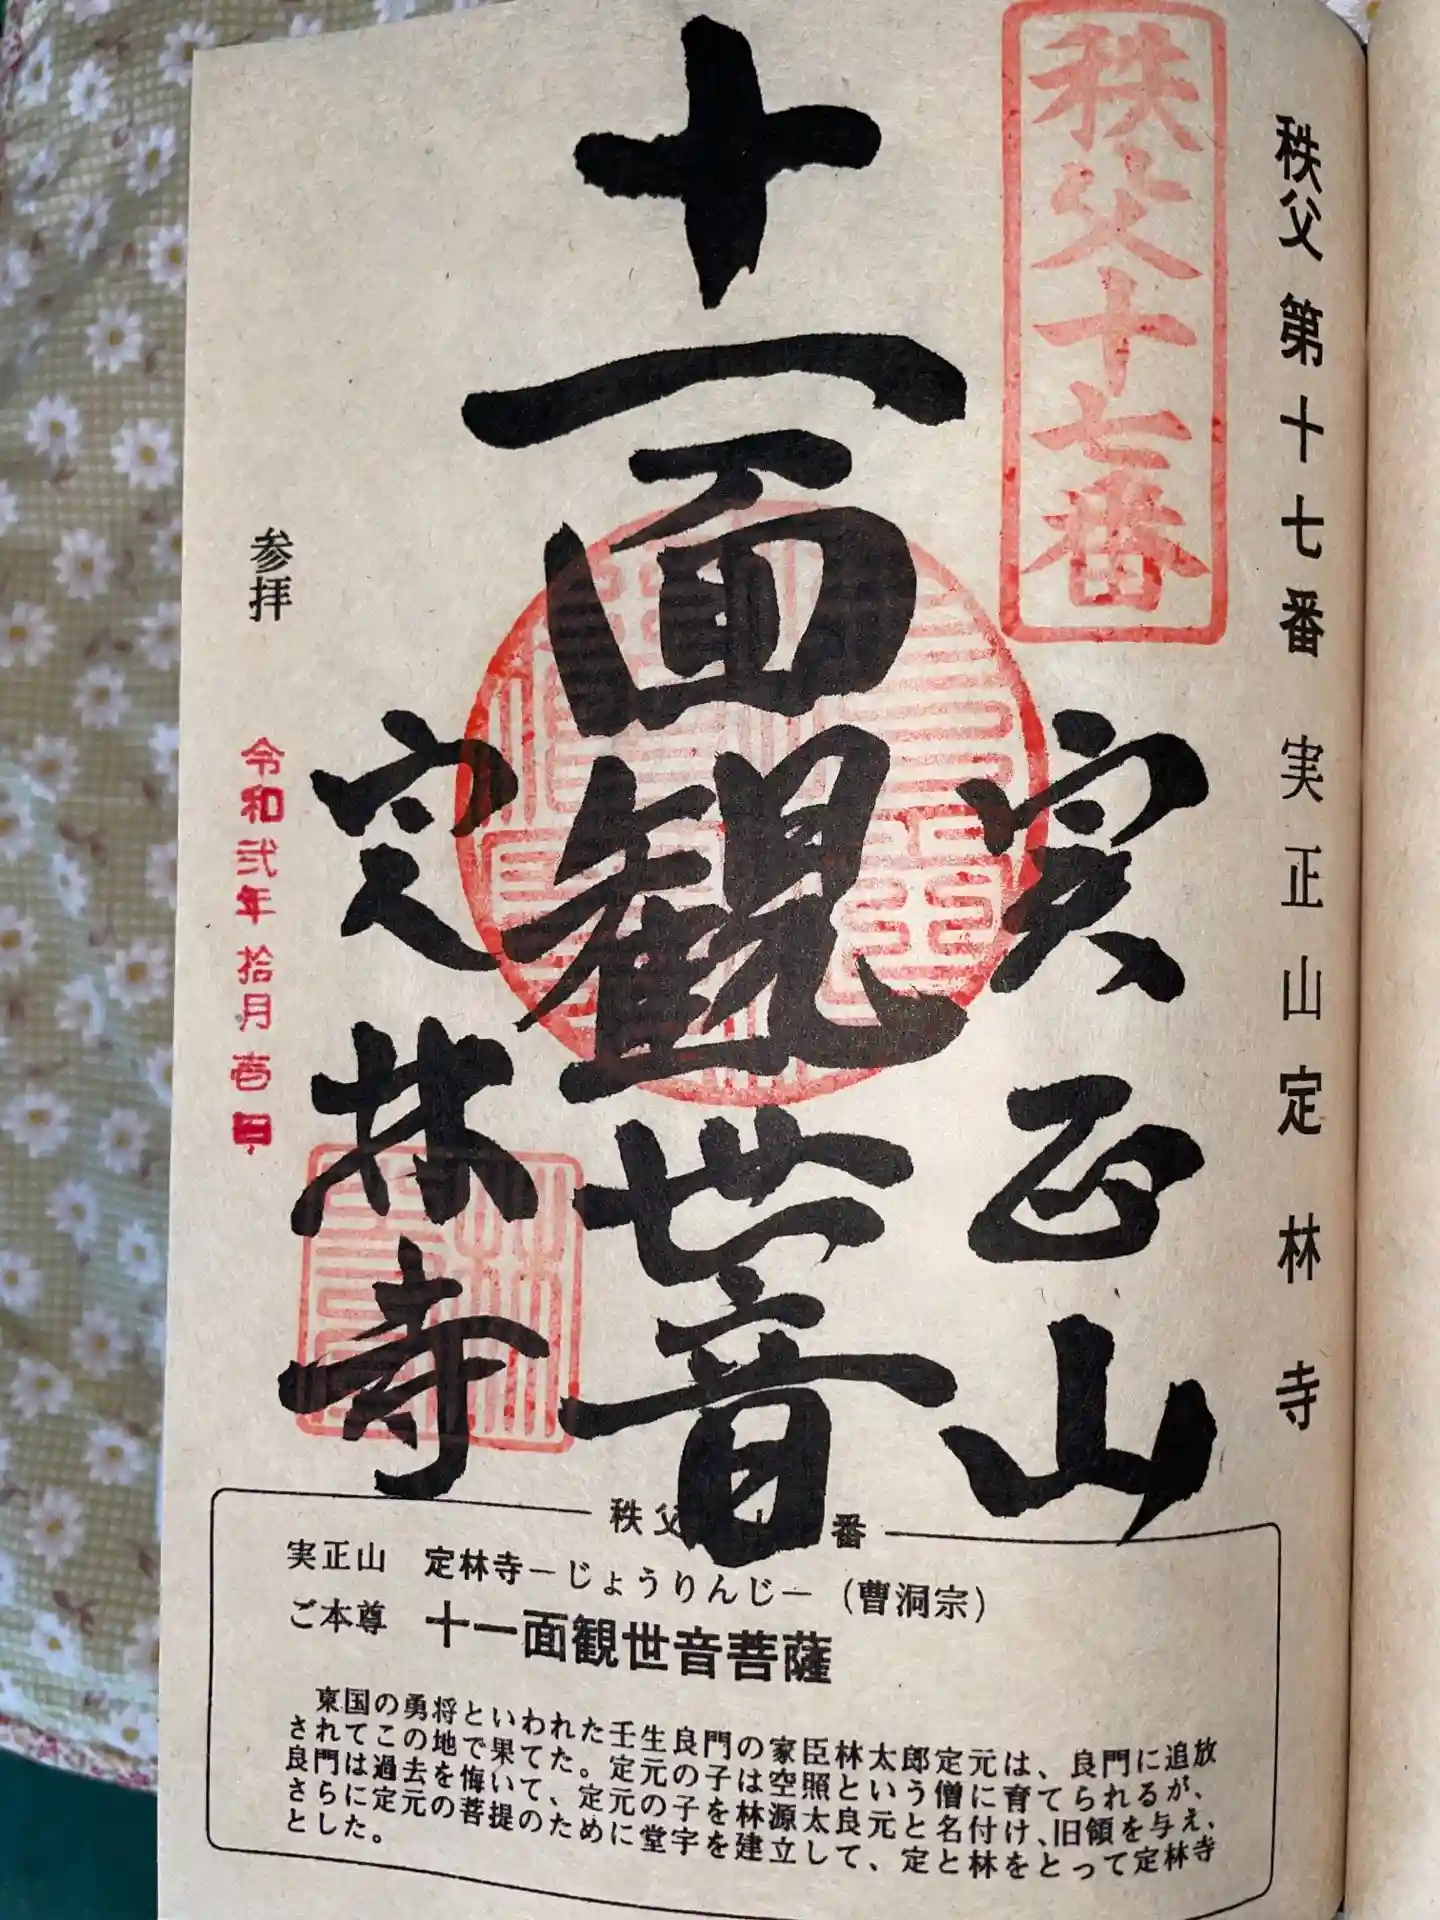 秩父 第十七番 実正山 定林寺
秩父十七番
実正山
十一面観世音
定林寺
参拝
令和弐年 拾月壱日
秩父 番
実正山 定林寺―じょうりんじ―（曹洞宗）
ご本尊 十一面観世音菩薩
東国の勇将といわれた壬生良門の家臣林太郎定元は、良門に追放
されてこの地で果てた。定元の子は空照という僧に育てられるが、
良門は過去を悔いて、定元の子を林源太良元と名付け、旧領を与え、
さらに定元の菩提のために堂宇を建立して、定と林をとって定林寺
とした。